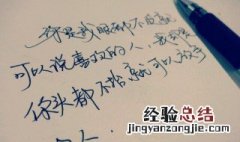 你是我眼都不眨就
可以说喜欢的人,我
你头都不抬就可以放手
经验总结
jingyanzongjie.com